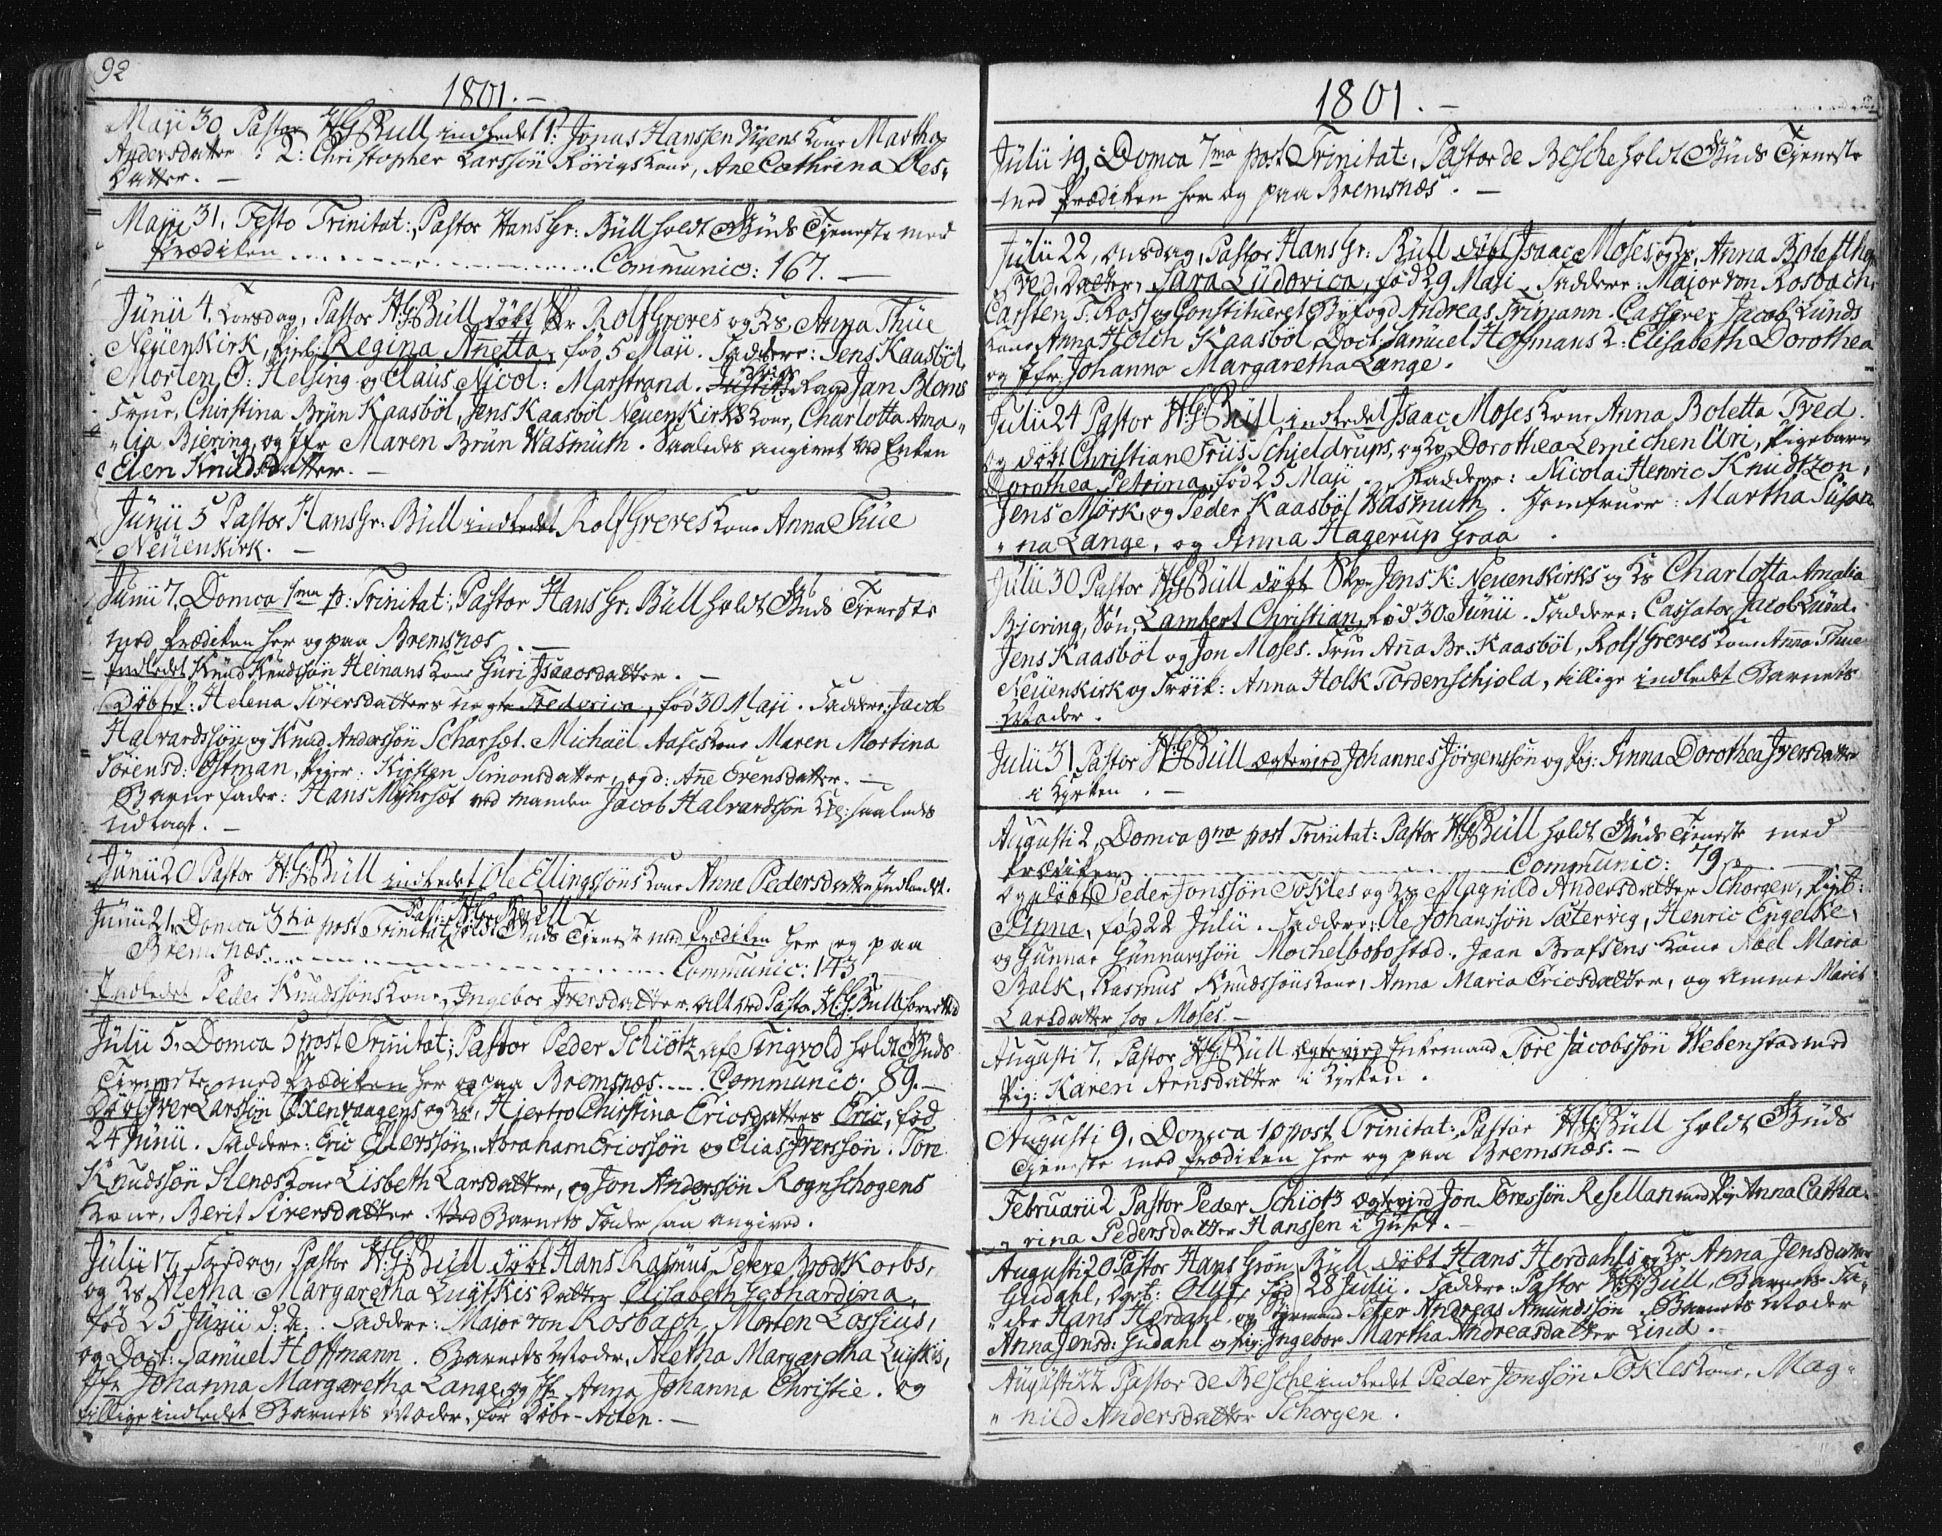 92
1801. –
Maji 30 Pastor H:G:Büll indledet 1: Jonas Hanssen Vigens Kone Martha
Andersdatter. 2: Christopher Larssøn Rörvigs Kone, Ane Cathrina Oles-
datter. –
Maji 31, Festo Trinitat: Pastor Hans Gr: Büll holdt Guds Tjeneste med
Prædiken ... Communic: 167. –
Junii 4, Torsdag, Pastor H:G:Büll döbt Hr Rolf Greves og Hs Anna Thüe
Neüenkirk, Pigeb: Regina Annetta, fød 5 Maji. Faddere: Jens Kaasböl,
Morten O: Helsing og Claus Nicol: Marstrand. Jan Bloms
Frue, Christina Brün Kaasböl, Jens Kaasböl Neüenkirks Kone, Charlotta Ama-
lia Biering, og Jfr Maren Brün Wasmuth. Saaledes angivet ved Enken
Elen Knudsdatter. –
Junii 5 Pastor Hans Gr: Büll indledet Rolf Greves Kone Anna Thüe
Neüenkirk. –
Junii 7, Domca 1ma p: Trinitat: Pastor Hans Gr: Büll holdt Guds Tjeneste
med Prædiken her og paa Bremsnæs.
Indledet Knud Knudssøn Heinans Kone Guri Isaacsdatter. –
Döbt: Helena Siversdatters uægte Frederica, fød 30 Maji. Faddere: Jacob
Halvardssøn og Knud Anderssøn Scharset. Michaël Aases Kone Maren Martina
Sörensd: Östman, Piger: Kirsten Simonsdatter, og d: Ane Evensdatter. –
Barne fader: Hans Myhrset ved Manden Jacob Halvardssøn saaledes
udlagt. –
Junii 20 Pastor H:G:Büll indledet Ole Ellingssøns Kone Anne Pedersdatter Indlandet.
Junii 21, Domca 3tia post Trinitat: Past: H:Gr:Büll holdt Guds Tjeneste med Prædiken her og paa
Bremsnæs ... Communic: 143
Indledet Peder Knudssøns Kone, Ingebor Iversdatter. alt ved Pastor H:G:Büll forrettet
Julii 5, Domca 5 post Trinitat: Pastor Peder Schiötz af Tingvold holdt Guds
Tjeneste med Prædiken her og paa Bremsnæs.... Communic: 89. –
Döbt Iver Larssøn Oxenvaagens og Hs Hjertro Christina Ericsdatters Eric, fød
24 Junii. Faddere: Eric Ellerssøn, Abraham Ericssøn og Elias Iverssøn. Tore
Knudssøn Stenæs Kone Lisbeth Larsdatter, og Jon Anderssøn Rognschogens
Kone, Berit Siversdatter. Ved Barnets Fader saa angived.
Julii 17, Fredag, Pastor H:G:Büll döbt Hans Rasmus Peter Brodtkorbs,
og Hs Aletha Margaretha Luytkis datter Elisabeth Gothardina,
fød 25 Junii d: A. Faddere: Major von Rosbach, Morten Lossius,
og Doct: Samuel Hoffmann. Barnets Moder, Aletha Margaretha Luytkis,
Jfr Johanna Margaretha Lange, og Jfr Anna Johanna Christie. og
tillige indledet Barnets Moder, før Döbe-Acten. –
1801. –
Julii 19, Domca 7ma post Trinitat:, Pastor de Besche holdt Guds Tjeneste
med Prædiken her og paa Bremsnæs. –
Julii 22, Onsdag, Pastor Hans Gr: Büll döbt Isaac Moses og Hs Anna Boletha
Tved, datter, Sara Ludovica, fød 29 Maji. Faddere: Major von Rosbach,
Carsten T: Ross og Constitueret Byfogd Andreas Frimann. Casserer Jacob Lunds
Kone Anna Holch Kaasböl. Doct: Samuel Hoffmans K: Elisabeth Dorothea
og Jfr: Johanna Margaretha Lange.
Julii 24 Pastor H:G:Büll indledet Isaac Moses Kone Anna Boletta Tved.
og döbt Christian Friis Schjeldrups, og Hs Dorothea Lemichen Uri, Pigebarn
Dorothea Petrina, fød 25 Maji. Faddere: Nicolai Henric Knudtzon,
Jens Mörk, og Peder Kaasböl Wasmuth. Jomfruer: Martha Susan-
na Lange, og Anna Hagerup Graa.
Julii 30 Pastor H:G:Büll döbt Jens K: Neüenkirks og Hs Charlotta Amalia
Biering, Søn, Lambert Christian, fød 30 Junii. Faddere: Cassator Jacob Lund.
Jens Kaasböl og Jon Moses. Frue Anna Br: Kaasböl, Rolf Greves Kone Anna Thue
Neüenkirk og Anna Holk Tordenschjold, tillige indledet Barnets
Moder.
Julii 31 Pastor H:G:Büll ægtevied Johannes Jörgenssøn og Pig: Anna Dorothea Iversdatter
i Kirken. –
Augusti 2, Domca 9na post Trinitat: Pastor H:G:Büll holdt Guds Tjeneste med
Prædiken ... Communic: 79.
Og döbt Peder Jonssøn Tokles og Hs Magnild Andersdatter Schorgen, Pigb:
Anna, fød 22 Julii. Faddere: Ole Johanssøn Sætervig, Henric Engelke,
og Gunnar Gunnarssøn Mochelbobostad. Jaan Brafsens Kone Abel Maria
Balk, Rasmus Knudssøns Kone, Anna Maria Ericsdatter, og Amme Marit
Larsdatter hos Moses. –
Augusti 7, Pastor H:G:Büll ægtevied Enkemand Tore Jacobssøn Webenstad med
Pig: Karen Arnsdatter i Kirken.
Augusti 9, Domca 10 post Trinitat: Pastor H:G:Büll holdt Guds
Tjeneste med Prædiken her og paa Bremsnæs. –
Februarii 2 Pastor Peder Schiötz ægtevied Jon Toressøn Resellan med Pig Anna Catha-
rina Pedersdatter Hanssen i Huset. –
Augusti 20 Pastor Hans Grøn Büll döbt Hans Hordahls og Hs Anna Jensdatter
Gudahl, Oluf, fød 28 Julii. Faddere: Pastor H:G:Büll, Barnets Fa-
der Hans Hordahl, og Styrmand Peter Andreas Amundssøn. Barnets Moder
Anna Jensd: Gudahl og Pig: Ingebor Martha Andreasdatter Lind. –
Augusti 22 Pastor de Besche indledet Peder Jonssøn Tokles Kone, Mag-
nild Andersdatter Schorgen.